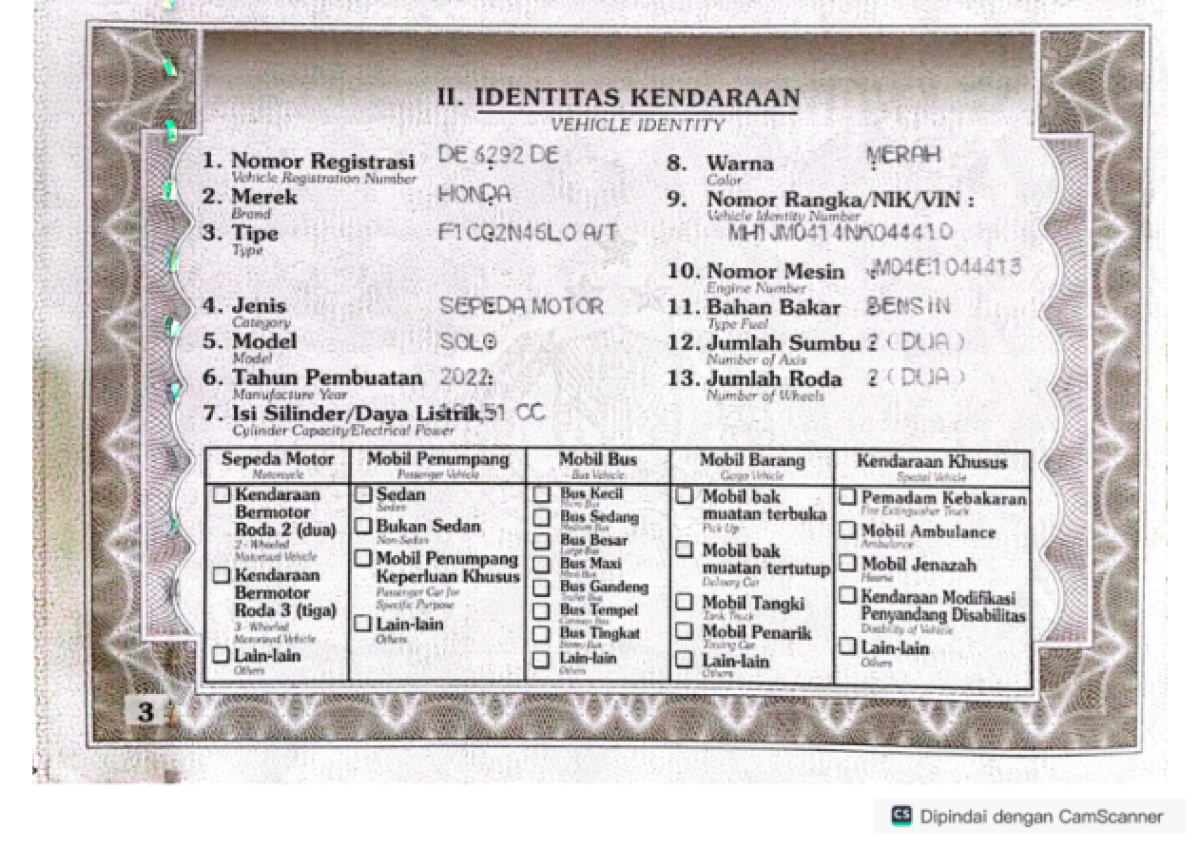 II. IDENTITAS KENDARAAN
VEHICLE IDENTITY
1. Nomor Registrasi DE 6292 DE
Vehicle Registration Number
2. Merek HONDA
Brand
3. Tipe F1C02N46L0 A/T
Type
4. Jenis SEPEDA MOTOR
Category
5. Model SOLO
Model
6. Tahun Pembuatan 2022
Manufacture Year
7. Isi Silinder/Daya Listrik 51 CC
Cylinder Capacity/Electrical Power
8. Warna MERAH
Color
9. Nomor Rangka/NIK/VIN :
Vehicle Identity Number
MH1JM0414NK044410
10. Nomor Mesin JM04E1044413
Engine Number
11. Bahan Bakar BENSIN
Type Fuel
12. Jumlah Sumbu 2 ( DUA )
Number of Axis
13. Jumlah Roda 2 ( DUA )
Number of Wheels
Sepeda Motor
Motorcycle
Kendaraan
Bermotor
Roda 2 (dua)
2 - Wheeled
Motorized Vehicle
Kendaraan
Bermotor
Roda 3 (tiga)
3 - Wheeled
Motorized Vehicle
Lain-lain
Others
Mobil Penumpang
Passenger Vehicle
Sedan
Sedan
Bukan Sedan
Non-Sedan
Mobil Penumpang
Keperluan Khusus
Passenger Car for
Specific Purpose
Lain-lain
Others
Mobil Bus
Bus Vehicle
Bus Kecil
Micro Bus
Bus Sedang
Medium Bus
Bus Besar
Large Bus
Bus Maxi
Maxi Bus
Bus Gandeng
Bus Tempel
Bus Tingkat
Lain-lain
Others
Mobil Barang
Cargo Vehicle
Mobil bak
muatan terbuka
Pick Up
Mobil bak
muatan tertutup
Delivery Car
Mobil Tangki
Tank Truck
Mobil Penarik
Towing Car
Lain-lain
Others
Kendaraan Khusus
Special Vehicle
Pemadam Kebakaran
Fire Extinguisher Truck
Mobil Ambulance
Ambulance
Mobil Jenazah
Hearse
Kendaraan Modifikasi
Penyandang Disabilitas
Disability of Vehicle
Lain-lain
Others
3
CS Dipindai dengan CamScanner